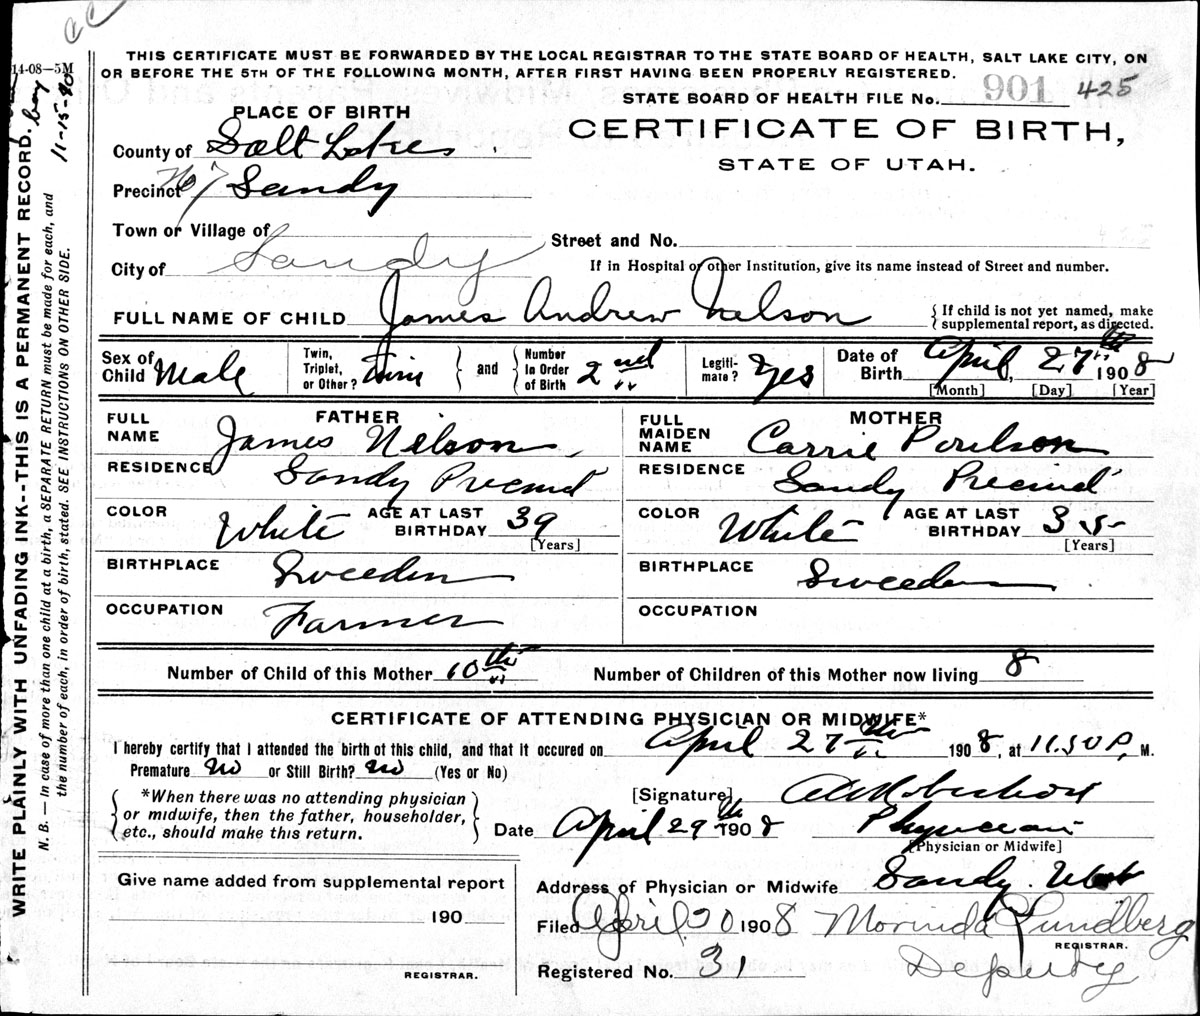 14-08—5M
THIS CERTIFICATE MUST BE FORWARDED BY THE LOCAL REGISTRAR TO THE STATE BOARD OF HEALTH, SALT LAKE CITY, ON
OR BEFORE THE 5TH OF THE FOLLOWING MONTH, AFTER FIRST HAVING BEEN PROPERLY REGISTERED.
STATE BOARD OF HEALTH FILE No. 901 425
PLACE OF BIRTH
CERTIFICATE OF BIRTH,
STATE OF UTAH.
County of Salt Lake
Precinct No 7 Sandy
Town or Village of
Street and No.
City of Sandy
If in Hospital or other Institution, give its name instead of Street and number.
FULL NAME OF CHILD James Andrew Nelson
{If child is not yet named, make
supplemental report, as directed.
Sex of Child Male
Twin, Triplet, or Other? Twin
and
Number in Order of Birth 2nd
Legitimate? Yes
Date of Birth April, 27th 1908
[Month] [Day] [Year]
FATHER
FULL NAME James Nelson
RESIDENCE Sandy Precinct
COLOR White AGE AT LAST BIRTHDAY 39
[Years]
BIRTHPLACE Sweeden
OCCUPATION Farmer
MOTHER
FULL MAIDEN NAME Carrie Poulson
RESIDENCE Sandy Precinct
COLOR White AGE AT LAST BIRTHDAY 35
[Years]
BIRTHPLACE Sweeden
OCCUPATION
Number of Child of this Mother 10th
Number of Children of this Mother now living 8
CERTIFICATE OF ATTENDING PHYSICIAN OR MIDWIFE*
I hereby certify that I attended the birth of this child, and that it occured on April 27th 1908, at 11.50 P, M.
Premature No or Still Birth? No (Yes or No)
{*When there was no attending physician
or midwife, then the father, householder,
etc., should make this return.}
[Signature]
Date April 29th 1908 Physician
[Physician or Midwife]
Give name added from supplemental report
190
REGISTRAR.
Address of Physician or Midwife Sandy. Utah
Filed April 30 1908 Morinda Lundberg
REGISTRAR.
Registered No. 31 Deputy
WRITE PLAINLY WITH UNFADING INK--THIS IS A PERMANENT RECORD.
N. B. — In case of more than one child at a birth, a SEPARATE RETURN must be made for each, and
the number of each, in order of birth, stated. SEE INSTRUCTIONS ON OTHER SIDE.